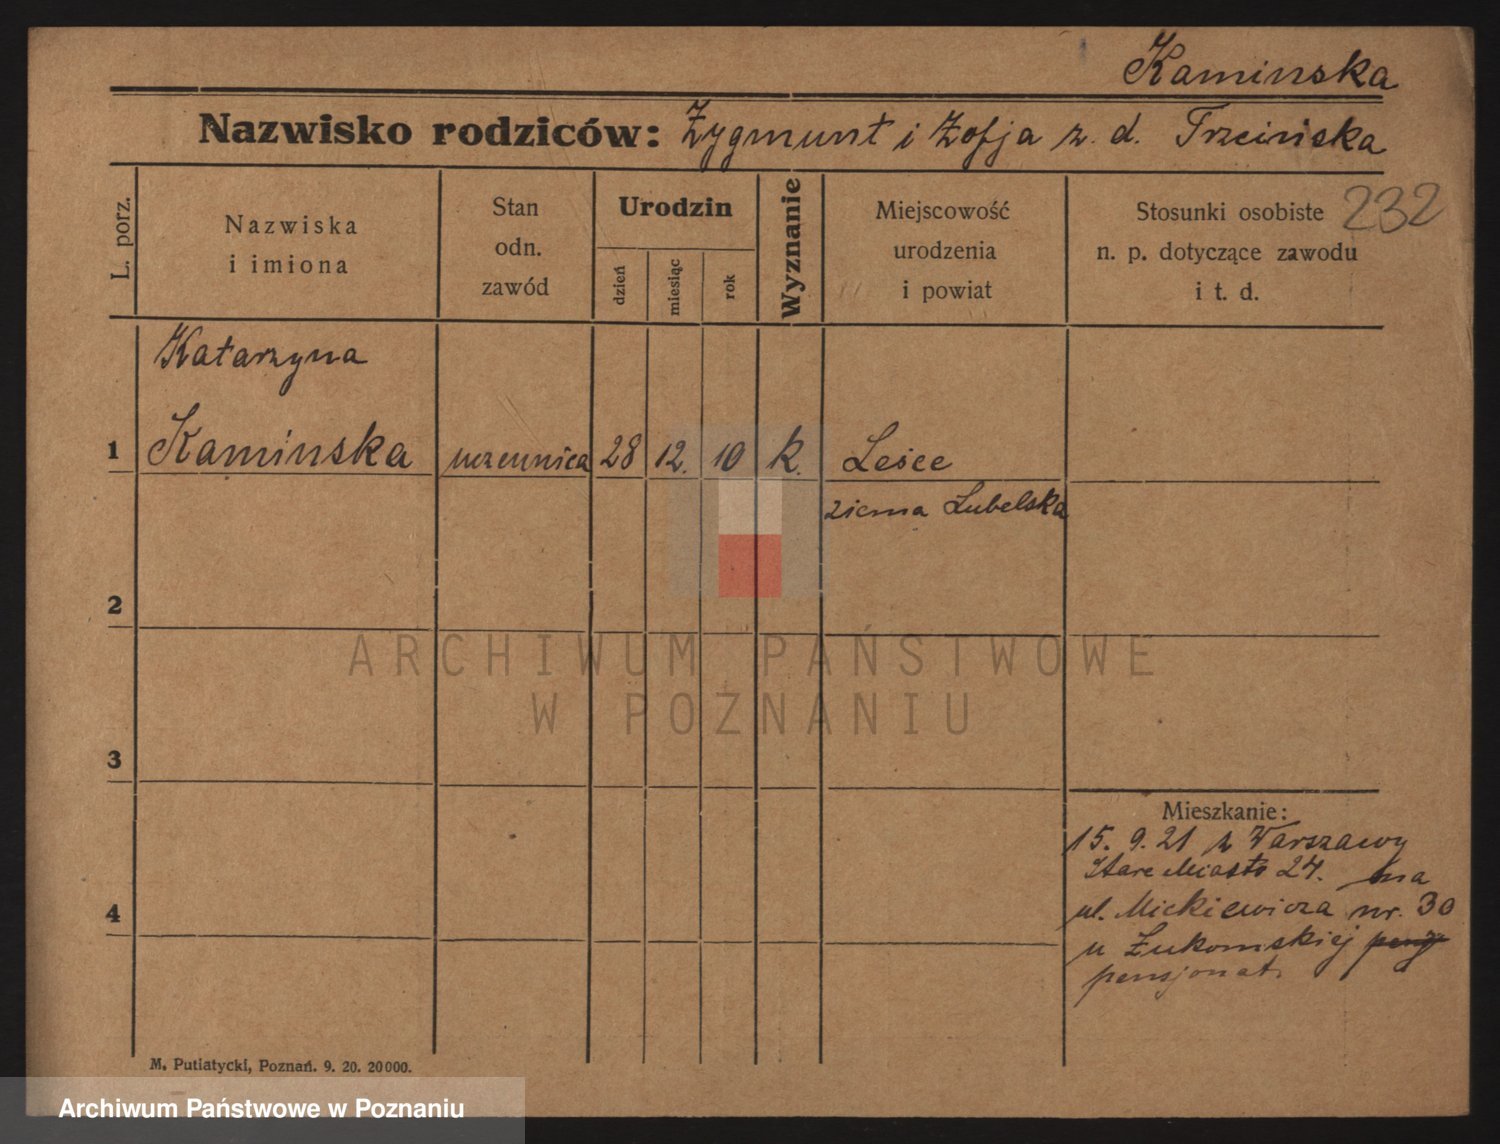 Kaminska
Nazwisko rodziców: Zygmunt i Zofja z. d. Trzcińska
232
L. porz.
Nazwiska
i imiona
Stan
odn.
zawód
Urodzin
dzień
miesiąc
rok
Wyznanie
Miejscowość
urodzenia
i powiat
Stosunki osobiste
n. p. dotyczące zawodu
i t. d.
Katarzyna
1 Kaminska uczennica 28 12. 10 k. Leśce
ziema Lubelska
2
3
4
Mieszkanie:
15. 9. 21 z Warszawy
Stare Miasto 24. na
ul. Mickiewicza nr. 30
u Łukomskiej
pensjonat.
M. Putiatycki, Poznań. 9. 20. 20000.
ARCHIWUM PAŃSTWOWE
W POZNANIU
Archiwum Państwowe w Poznaniu